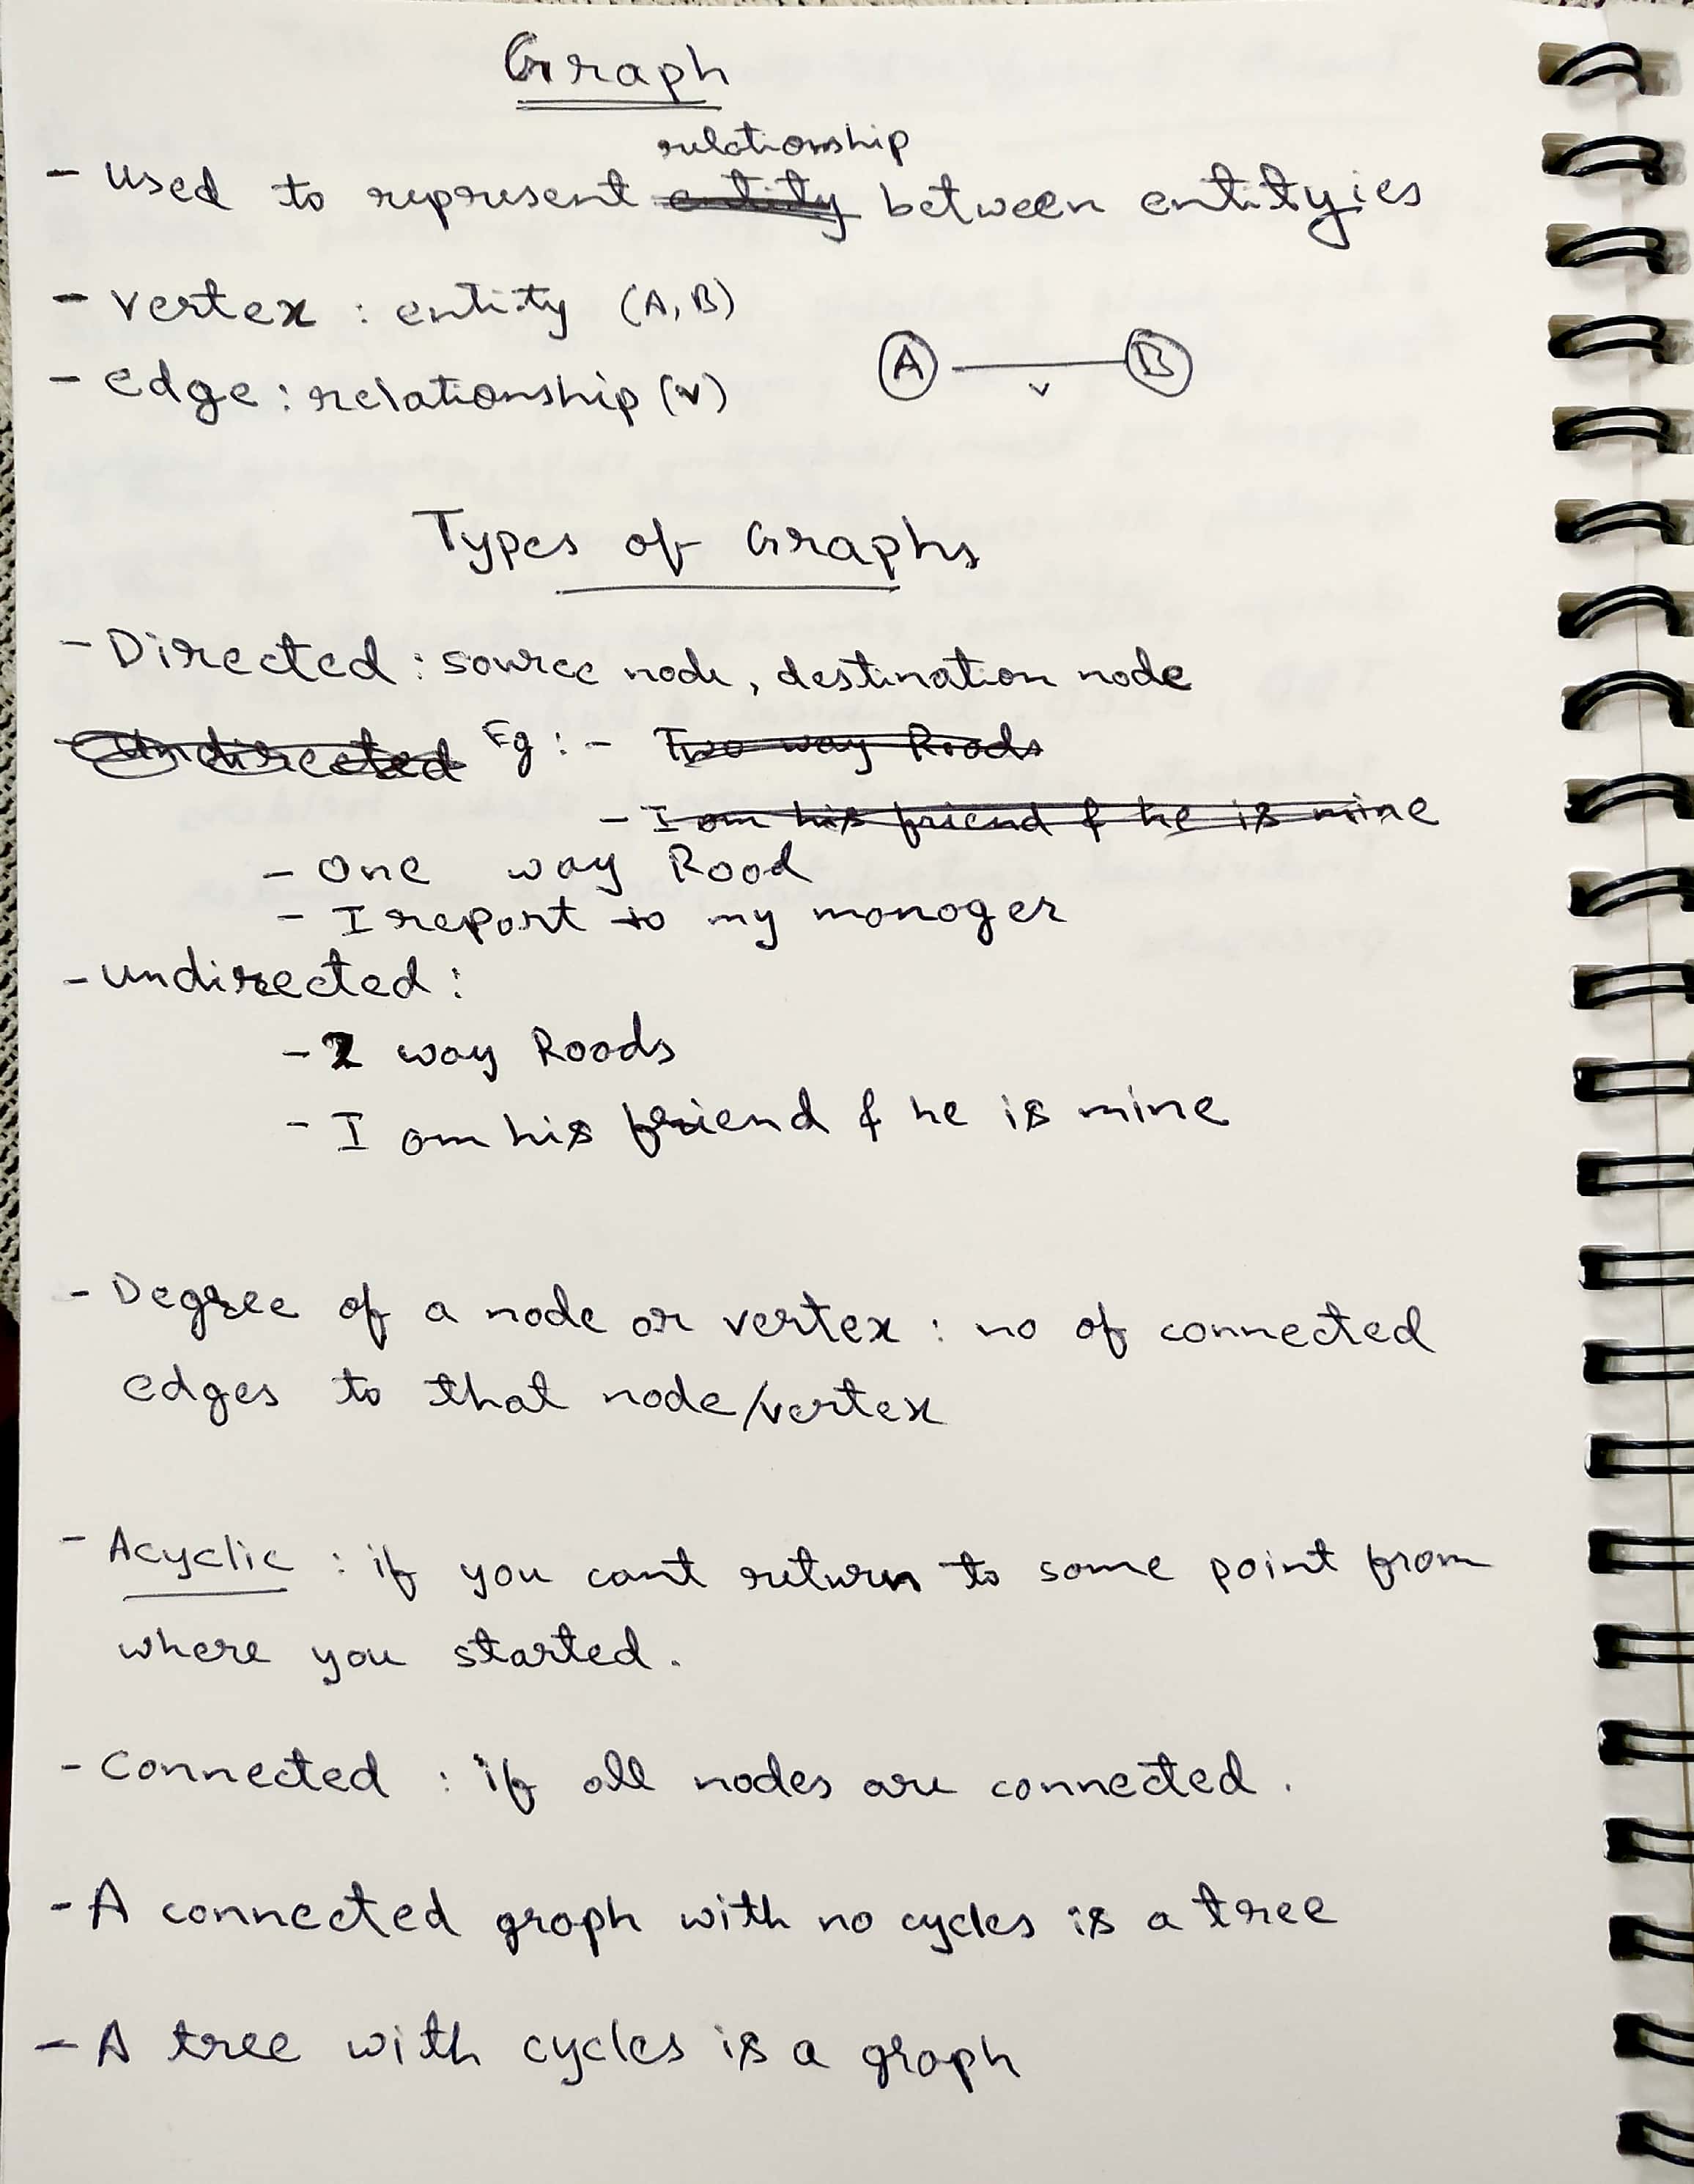 Graph
relationship
- Used to represent entity between entityies
- Vertex : entity (A, B)
A B
- edge : relationship (v)
v
Types of Graphs
- Directed : source node, destination node
Undirected Eg : - Two way Roads
- I am his friend & he is mine
- One way Road
- I report to my manager
- undirected :
- 2 way Roads
- I am his friend & he is mine
- Degree of a node or vertex : no of connected
edges to that node/vertex
- Acyclic : if you cant return to same point from
where you started.
- Connected : if all nodes are connected.
- A connected graph with no cycles is a tree
- A tree with cycles is a graph